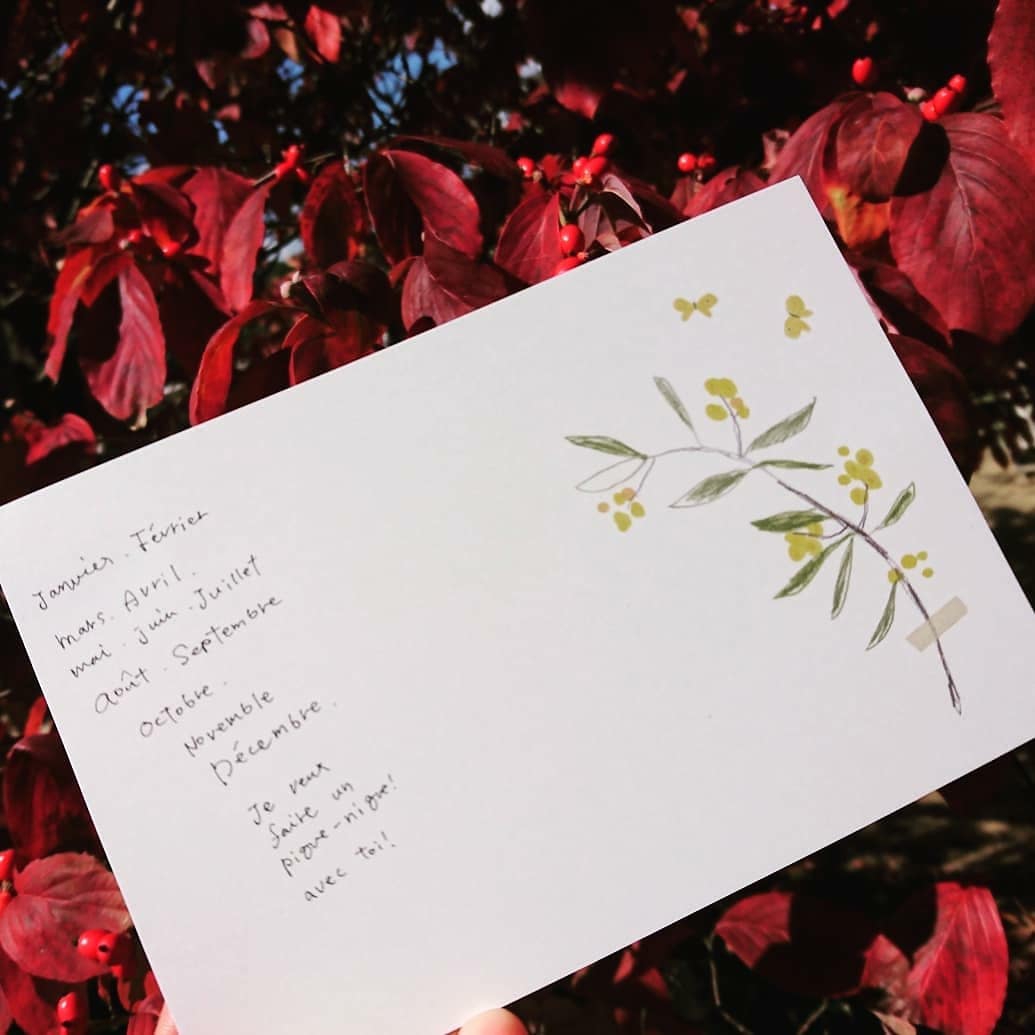 Janvier. Février
mars. Avril.
mai. juin. Juillet
août. Septembre
octobre.
Novemble
Décembre.
Je veux
faire un
pique-nique!
avec toi!